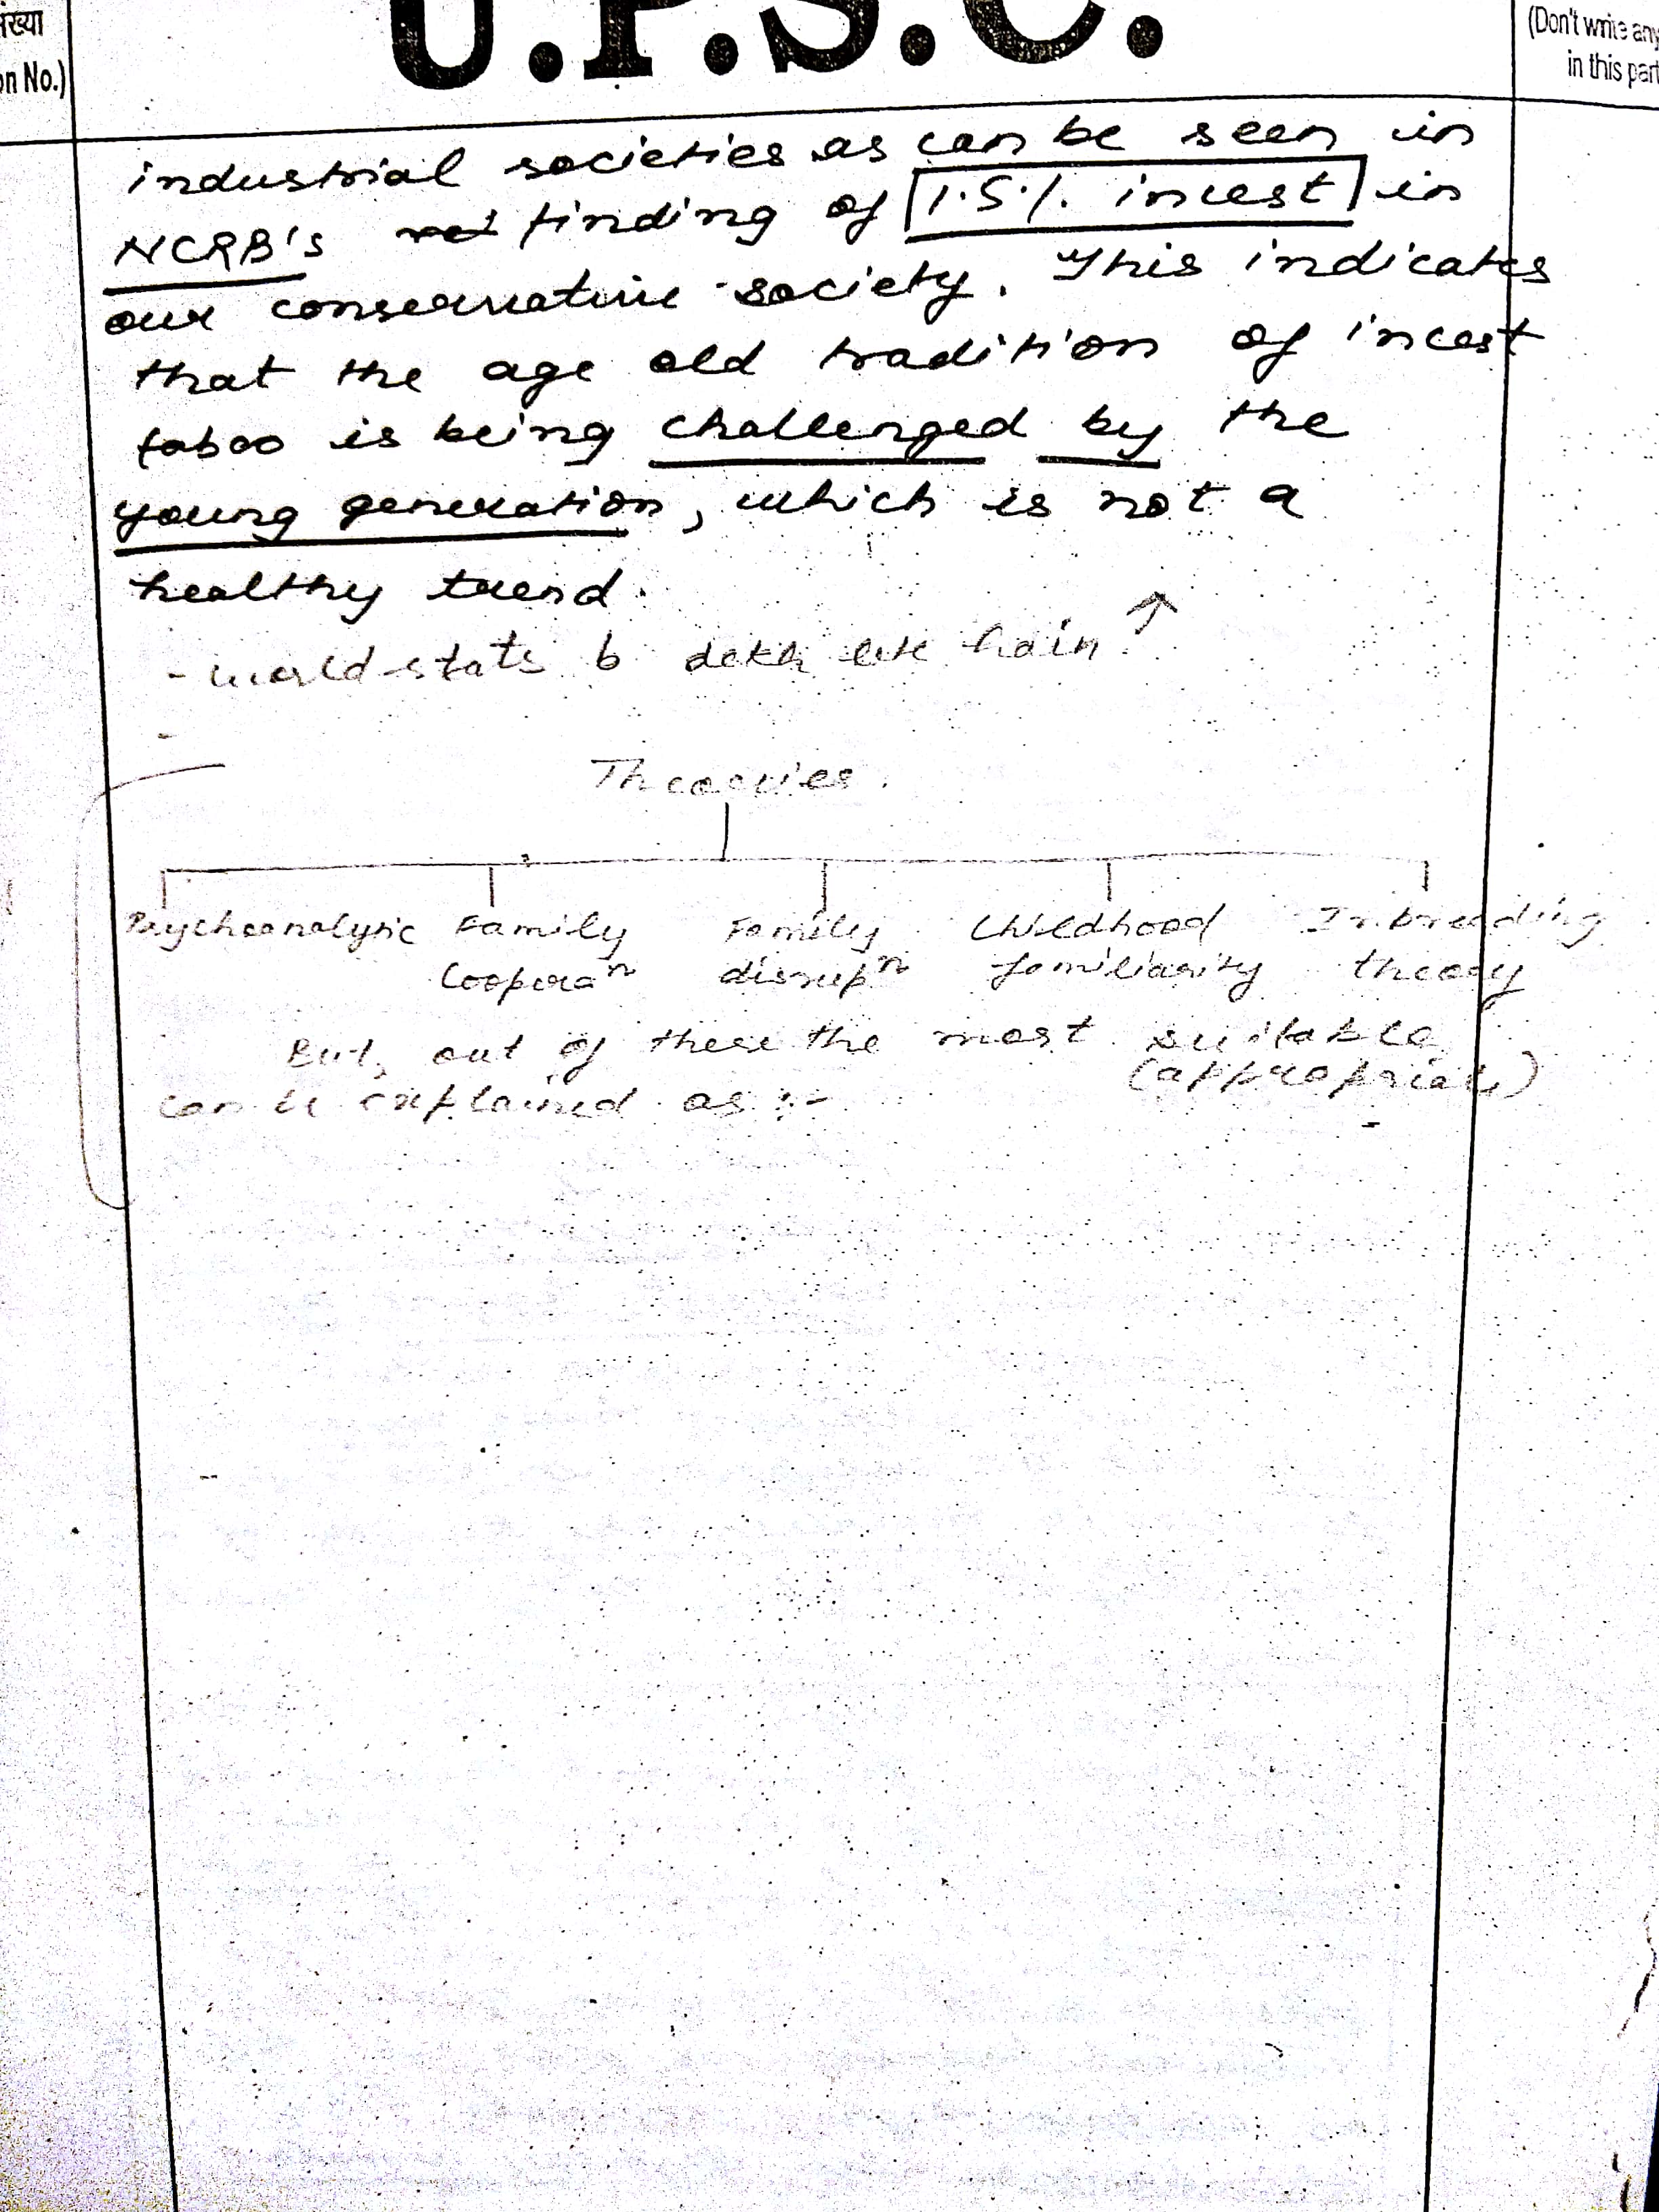 संख्या
on No.)
U.P.S.C.
(Don't write any
in this part
industrial societies as can be seen in
NCRB's finding of 1.5% incest in
our conservative society. This indicates
that the age old tradition of incest
taboo is being challenged by the
young generation, which is not a
healthy trend.
- world stats b dekh lete hain ↑
Theories.
Psychoanalytic
Family Cooperaⁿ
Family disrupⁿ
Childhood familiarity
Inbreeding theory
But, out of these the most suitable
(appropriate)
can be explained as :-